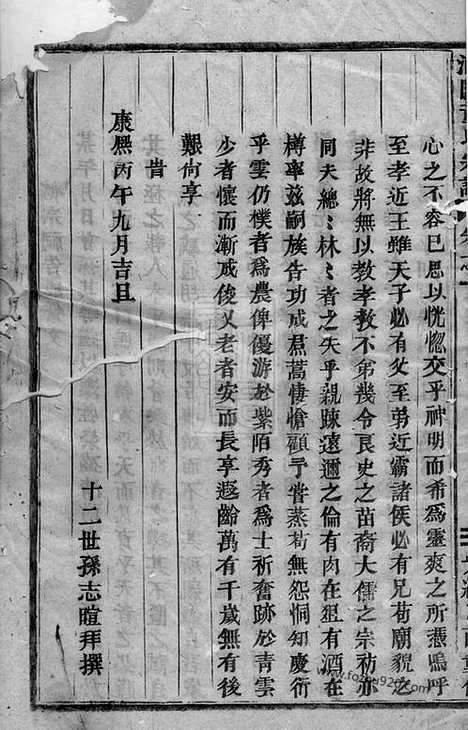 心之不容已思以恍惚交乎神明而希爲靈爽之所憑嗚呼
至孝近王雖天子必有父至弟近霸諸侯必有兄苟廟貌之
非故將無以教孝教不弟幾令良史之苗裔大儒之宗祊亦
同夫總〻林〻者之失乎親踈遠邇之倫有肉在俎有酒在
樽率茲嗣族告功成焄蒿悽愴顧予嘗蒸苟無怨恫知慶衍
乎雲仍樸者爲農俾優游於紫陌秀者爲士祈奮跡於青雲
少者懷而漸成俊乂老者安而長享遐齡萬有千歲無有後
艱尙享
旹
康熙丙午九月吉旦
十二世孫志暄拜撰
www.fozupu920.com